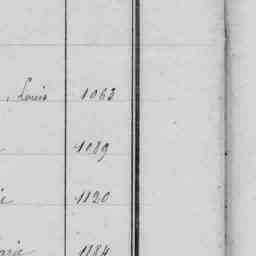 , Louis 1063
1089
1120
1184